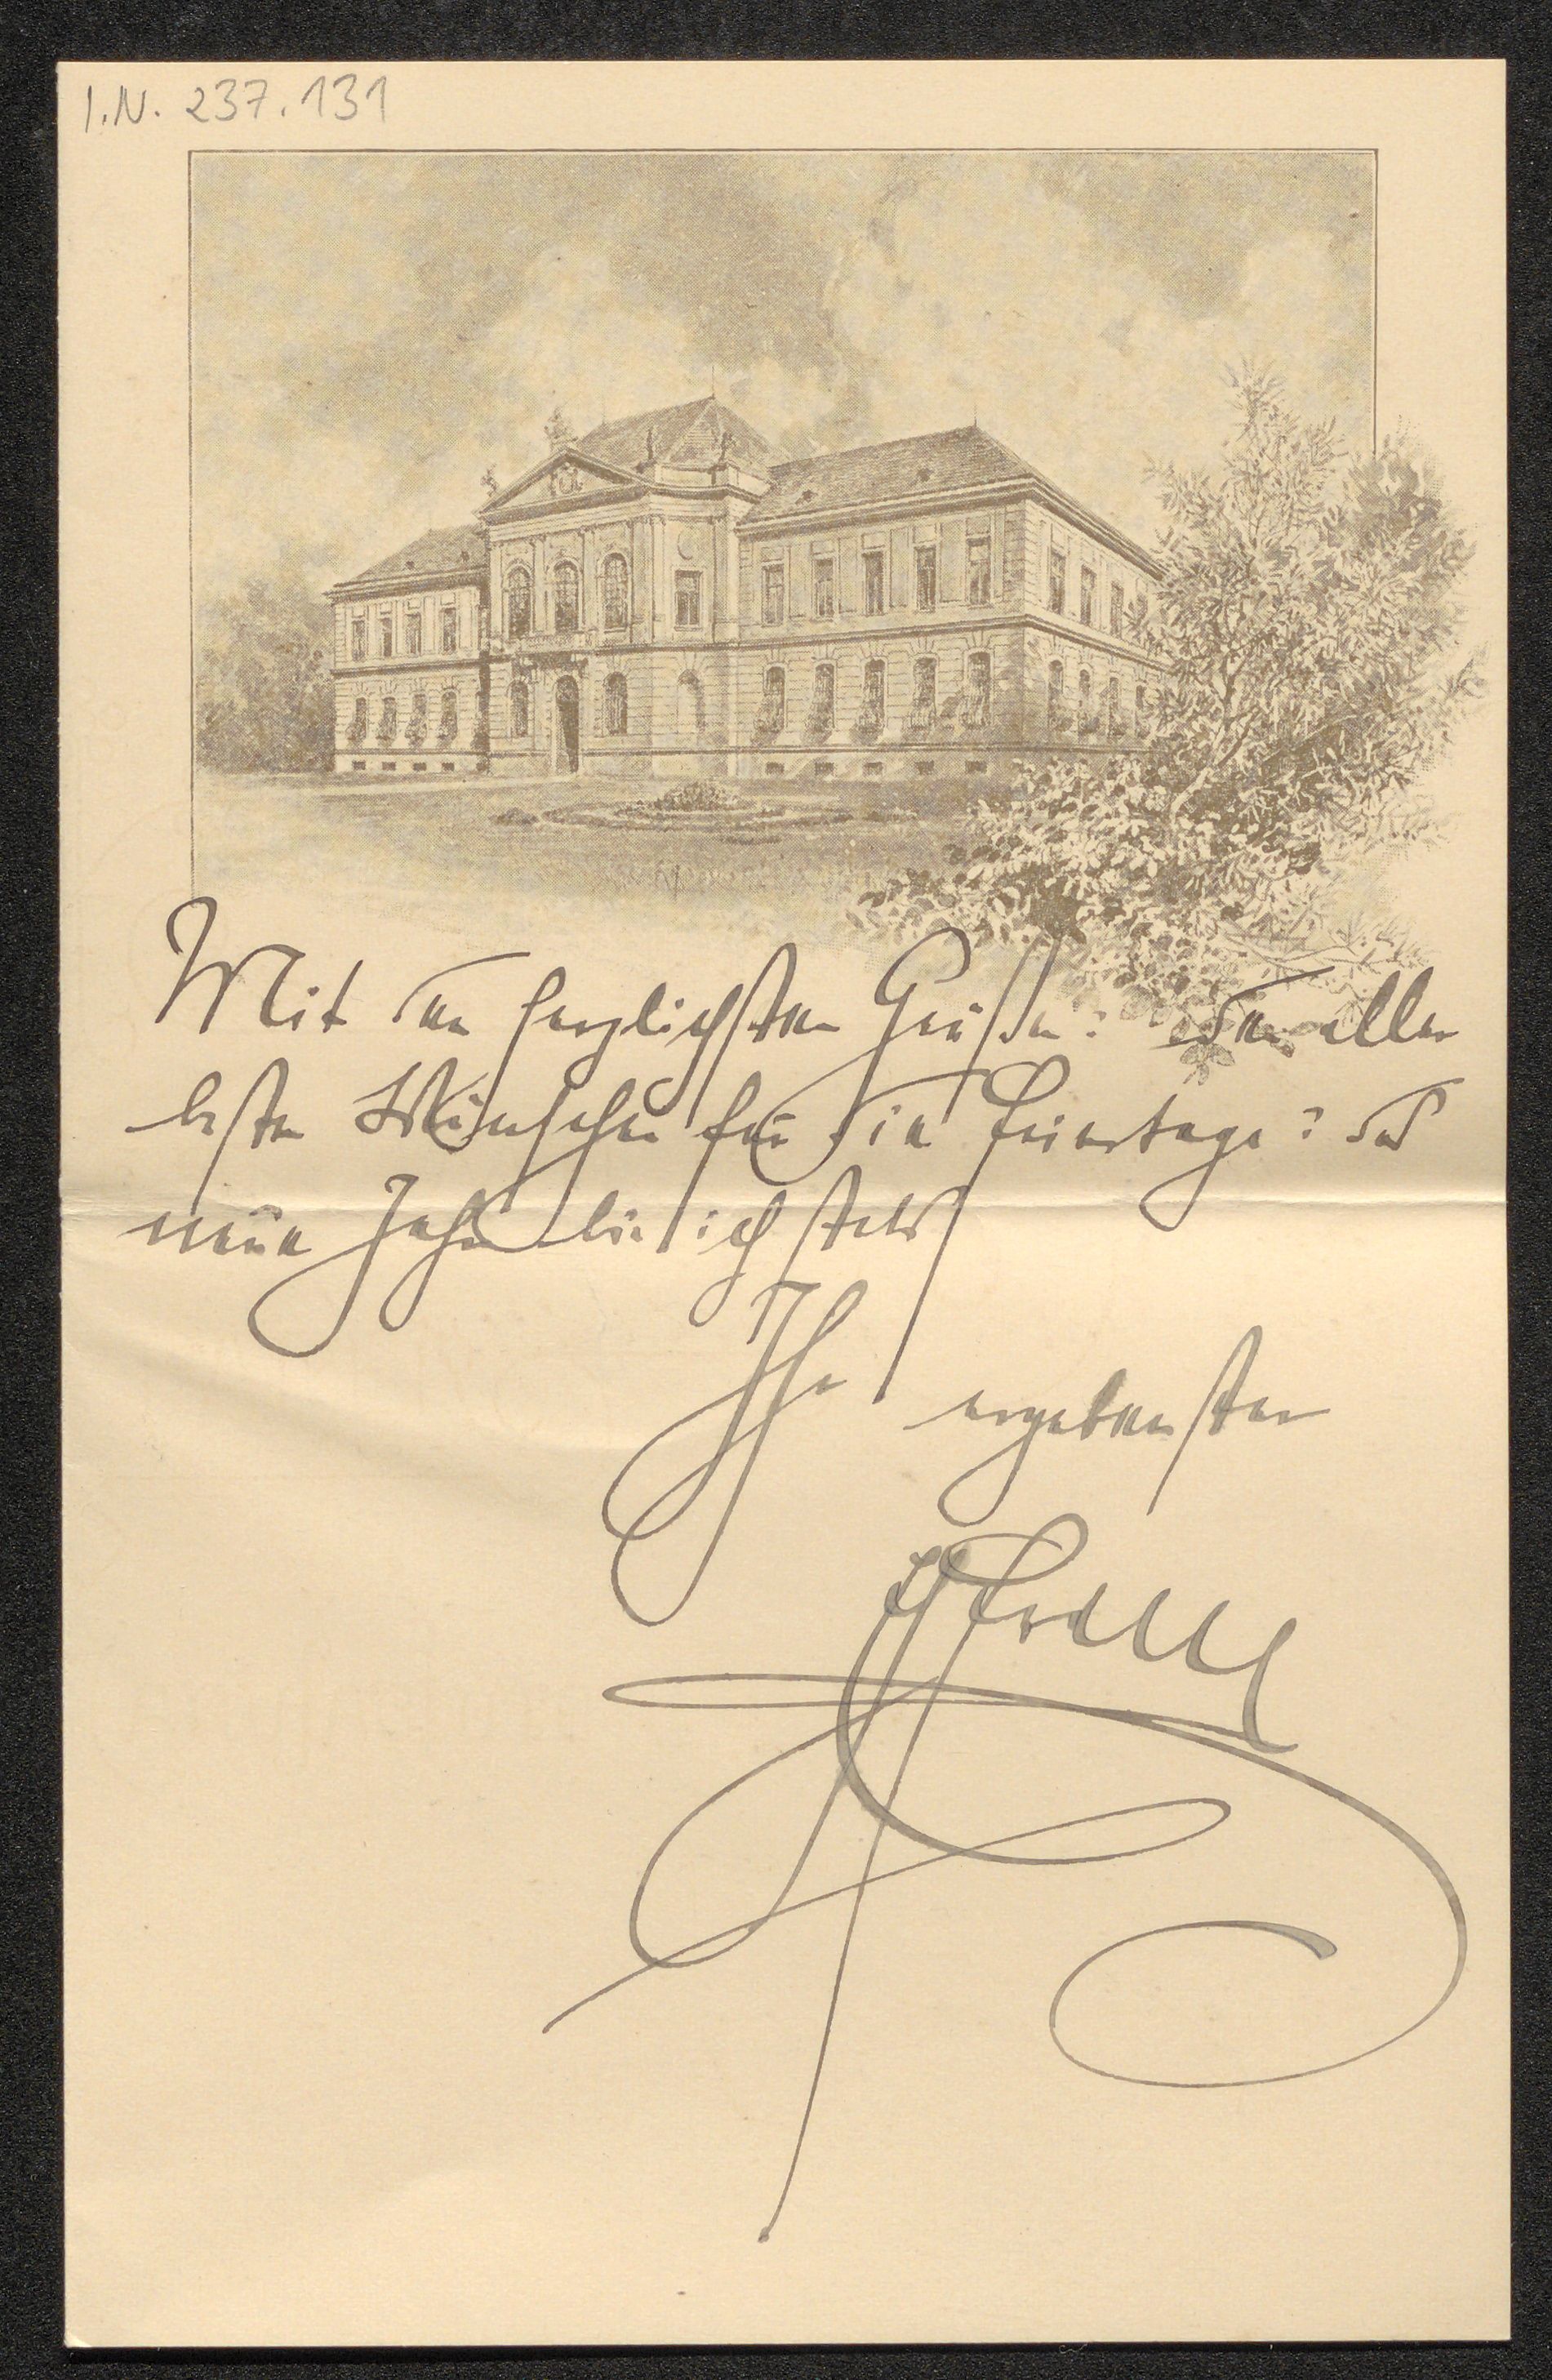 I.N. 237.131
Mit den herzlichsten Grüßen & den aller
besten Wünschen für die Feiertage & das
neue Jahr bin ich stets
Ihr ergebenster